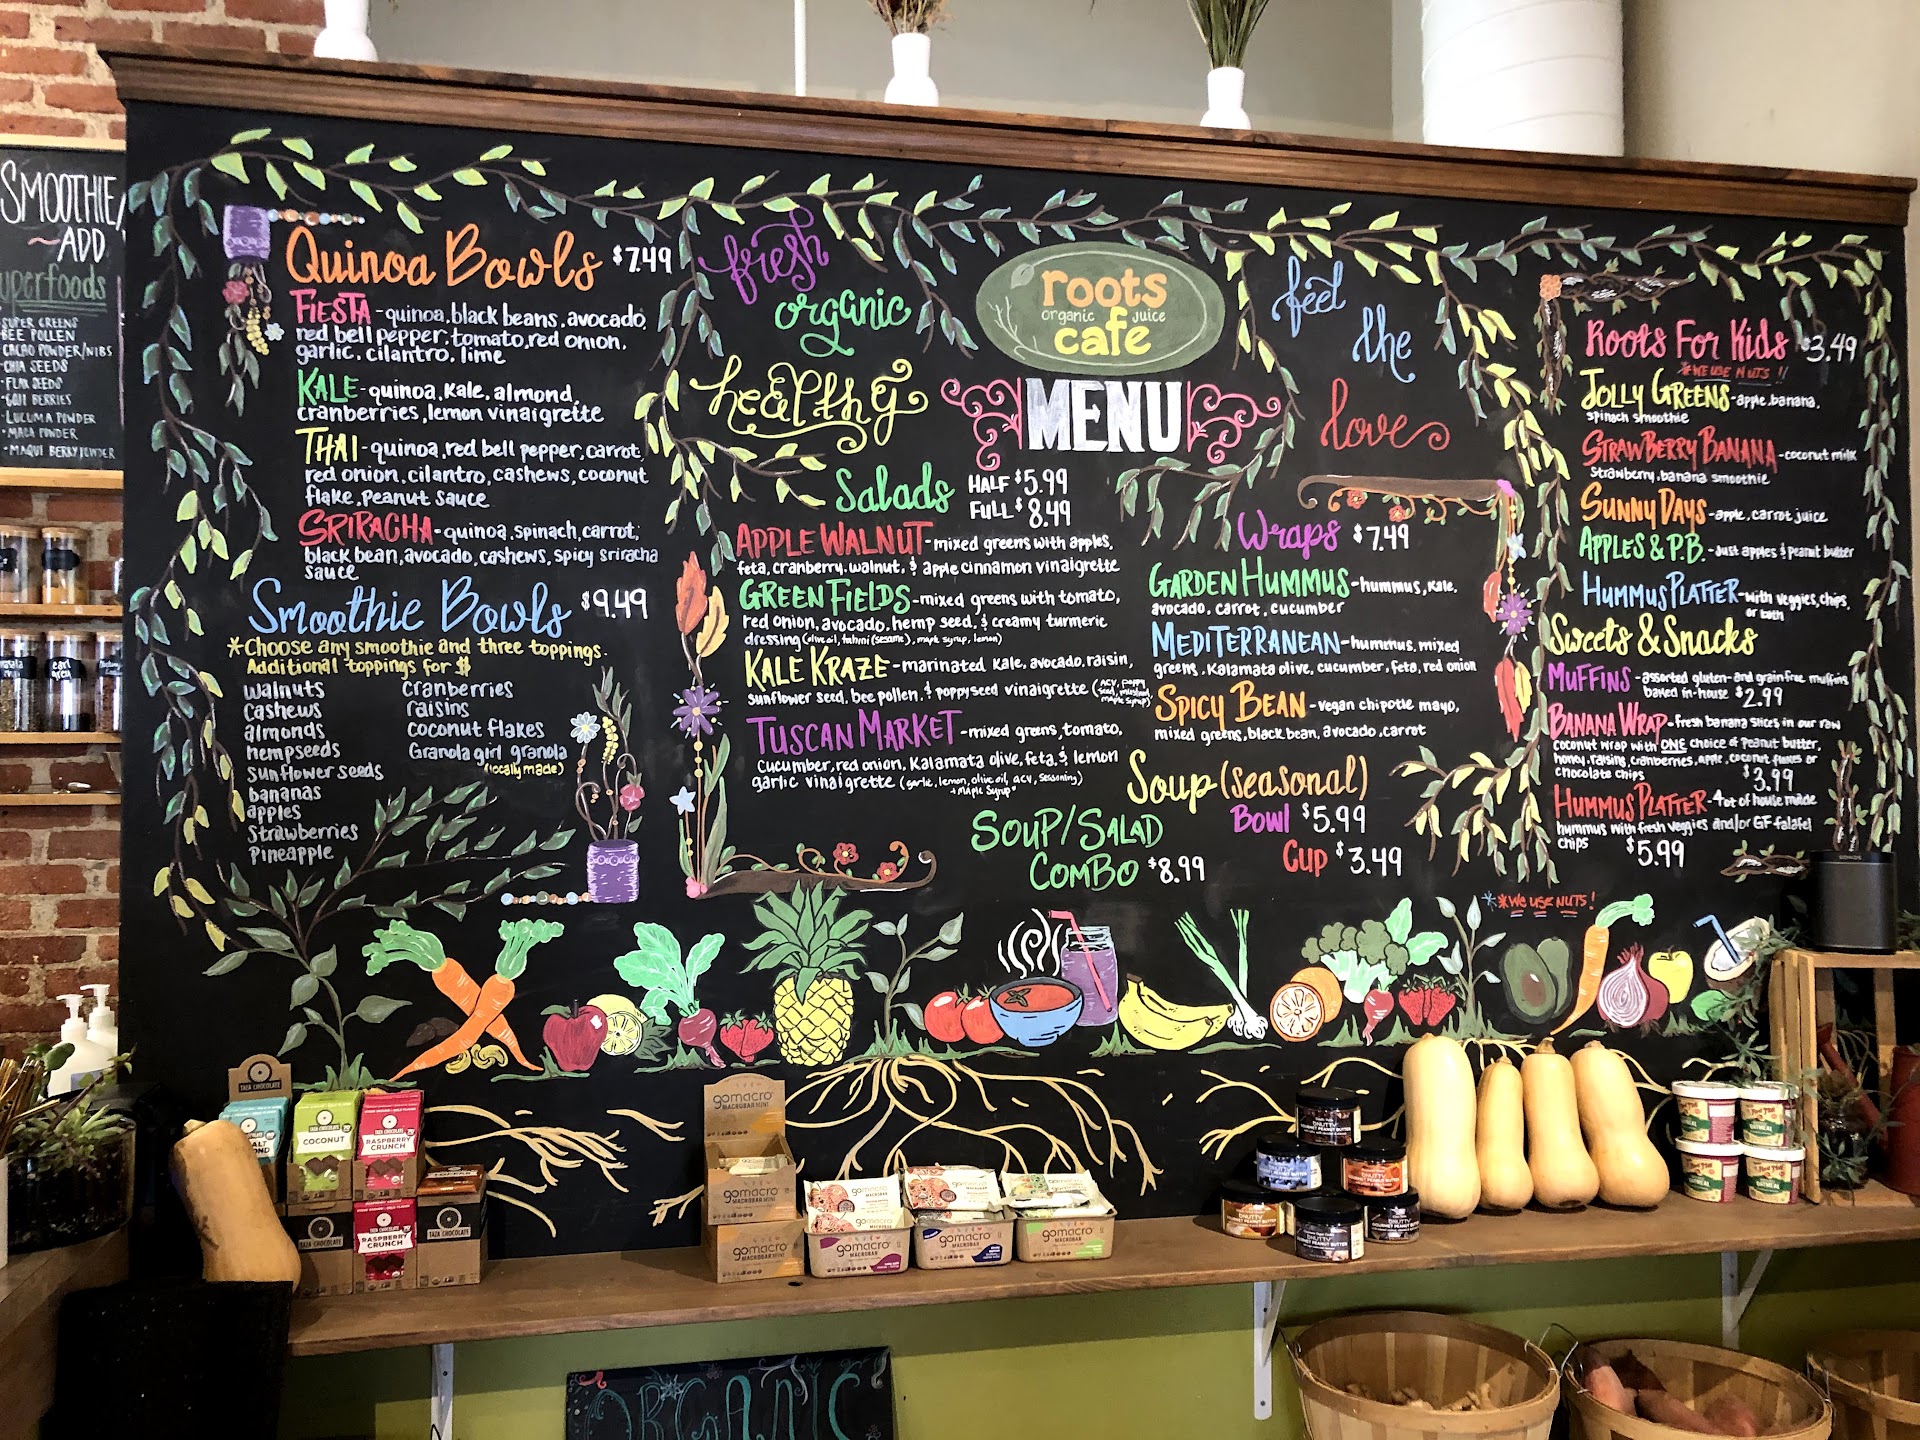 SMOOTHIE/
~ADD
uperfoods
SUPER GREENS
BEE POLLEN
CACAO POWDER/NIBS
CHIA SEEDS
FLAX SEEDS
GOJI BERRIES
LUCUMA POWDER
MACA POWDER
MAQUI BERRY POWDER
Quinoa Bowls $7.49
FIESTA - quinoa, black beans, avocado,
red bell pepper, tomato, red onion,
garlic, cilantro, lime
KALE - quinoa, kale, almond,
cranberries, lemon vinaigrette
THAI - quinoa, red bell pepper, carrot,
red onion, cilantro, cashews, coconut
flake, peanut sauce
SRIRACHA - quinoa, spinach, carrot,
black bean, avocado, cashews, spicy sriracha
sauce
Smoothie Bowls $9.49
*Choose any smoothie and three toppings.
Additional toppings for $
walnuts
cashews
almonds
hempseeds
sunflower seeds
bananas
apples
strawberries
pineapple
cranberries
raisins
coconut flakes
Granola girl granola
(locally made)
fresh
organic
healthy
roots
organic juice
cafe
MENU
feel
the
love
Salads HALF $5.99
FULL $8.49
APPLE WALNUT - mixed greens with apples,
feta, cranberry, walnut, & apple cinnamon vinaigrette
GREEN FIELDS - mixed greens with tomato,
red onion, avocado, hemp seed, & creamy turmeric
dressing (olive oil, tahini (sesame), maple syrup, lemon)
KALE KRAZE - marinated kale, avocado, raisin,
sunflower seed, bee pollen, & poppyseed vinaigrette (ACV, poppy
seed, mustard,
maple syrup)
TUSCAN MARKET - mixed greens, tomato,
cucumber, red onion, Kalamata olive, feta, & lemon
garlic vinaigrette (garlic, lemon, olive oil, acv, seasoning
+ maple syrup)
Wraps $7.49
GARDEN HUMMUS - hummus, kale,
avocado, carrot, cucumber
MEDITERRANEAN - hummus, mixed
greens, Kalamata olive, cucumber, feta, red onion
SPICY BEAN - vegan chipotle mayo,
mixed greens, black bean, avocado, carrot
Soup (seasonal)
Bowl $5.99
Cup $3.49
SOUP/SALAD
COMBO $8.99
Roots For Kids $3.49
*WE USE NUTS!!
JOLLY GREENS - apple, banana,
spinach smoothie
STRAWBERRY BANANA - coconut milk
strawberry, banana smoothie
SUNNY DAYS - apple, carrot juice
APPLES & P.B. - Just apples & peanut butter
HUMMUS PLATTER - with veggies, chips,
or both
Sweets & Snacks
MUFFINS - assorted gluten- and grain free muffins
baked in-house $2.99
BANANA WRAP - fresh banana slices in our raw
coconut wrap with ONE choice of peanut butter,
honey, raisins, cranberries, apple, coconut flakes or
chocolate chips $3.99
HUMMUS PLATTER - 4oz of house made
hummus with fresh veggies and/or GF falafel
chips $5.99
**WE USE NUTS!
TAZA CHOCOLATE
COCONUT
RASPBERRY
CRUNCH
TAZA CHOCOLATE
RASPBERRY
CRUNCH
TAZA CHOCOLATE
gomacro
MACROBAR MINI
gomacro
MACROBAR MINI
gomacro
MACROBAR MINI
gomacro
MACROBAR
gomacro
MACROBAR
gomacro
MACROBAR
earl
grey
ORGANIC